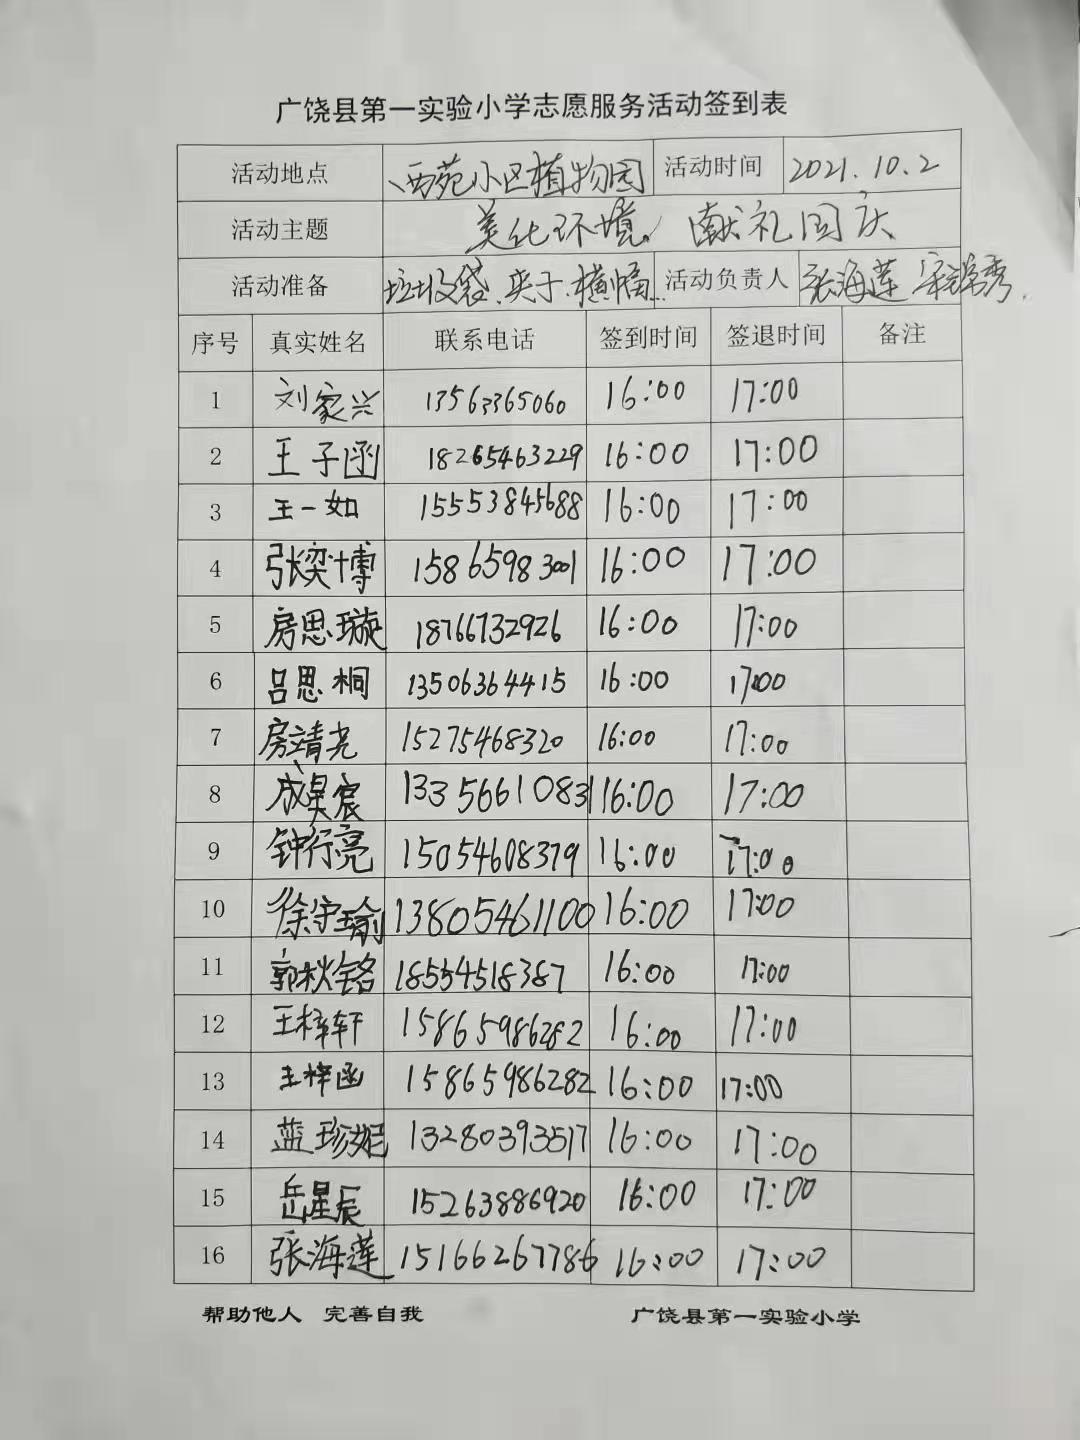 广饶县第一实验小学志愿服务活动签到表
活动地点 西苑小区植物园 活动时间 2021.10.2
活动主题 美化环境 献礼国庆
活动准备 垃圾袋、夹子、横幅... 活动负责人 张海莲 秀
序号 真实姓名 联系电话 签到时间 签退时间 备注
1 刘家兴 13563365060 16:00 17:00
2 王子函 18265463229 16:00 17:00
3 王一如 15553845688 16:00 17:00
4 张奕博 15865983001 16:00 17:00
5 房思璇 18766732926 16:00 17:00
6 吕思桐 13506364415 16:00 17:00
7 房靖尧 15275468320 16:00 17:00
8 成昊宸 13356610831 16:00 17:00
9 钟行亮 15054608379 16:00 17:00
10 徐宇瑜 13805461100 16:00 17:00
11 郭秋铭 18554518387 16:00 17:00
12 王梓轩 15865986282 16:00 17:00
13 王梓函 15865986282 16:00 17:00
14 蓝珍妮 13280393517 16:00 17:00
15 岳星辰 15263886920 16:00 17:00
16 张海莲 15166267786 16:00 17:00
帮助他人 完善自我 广饶县第一实验小学